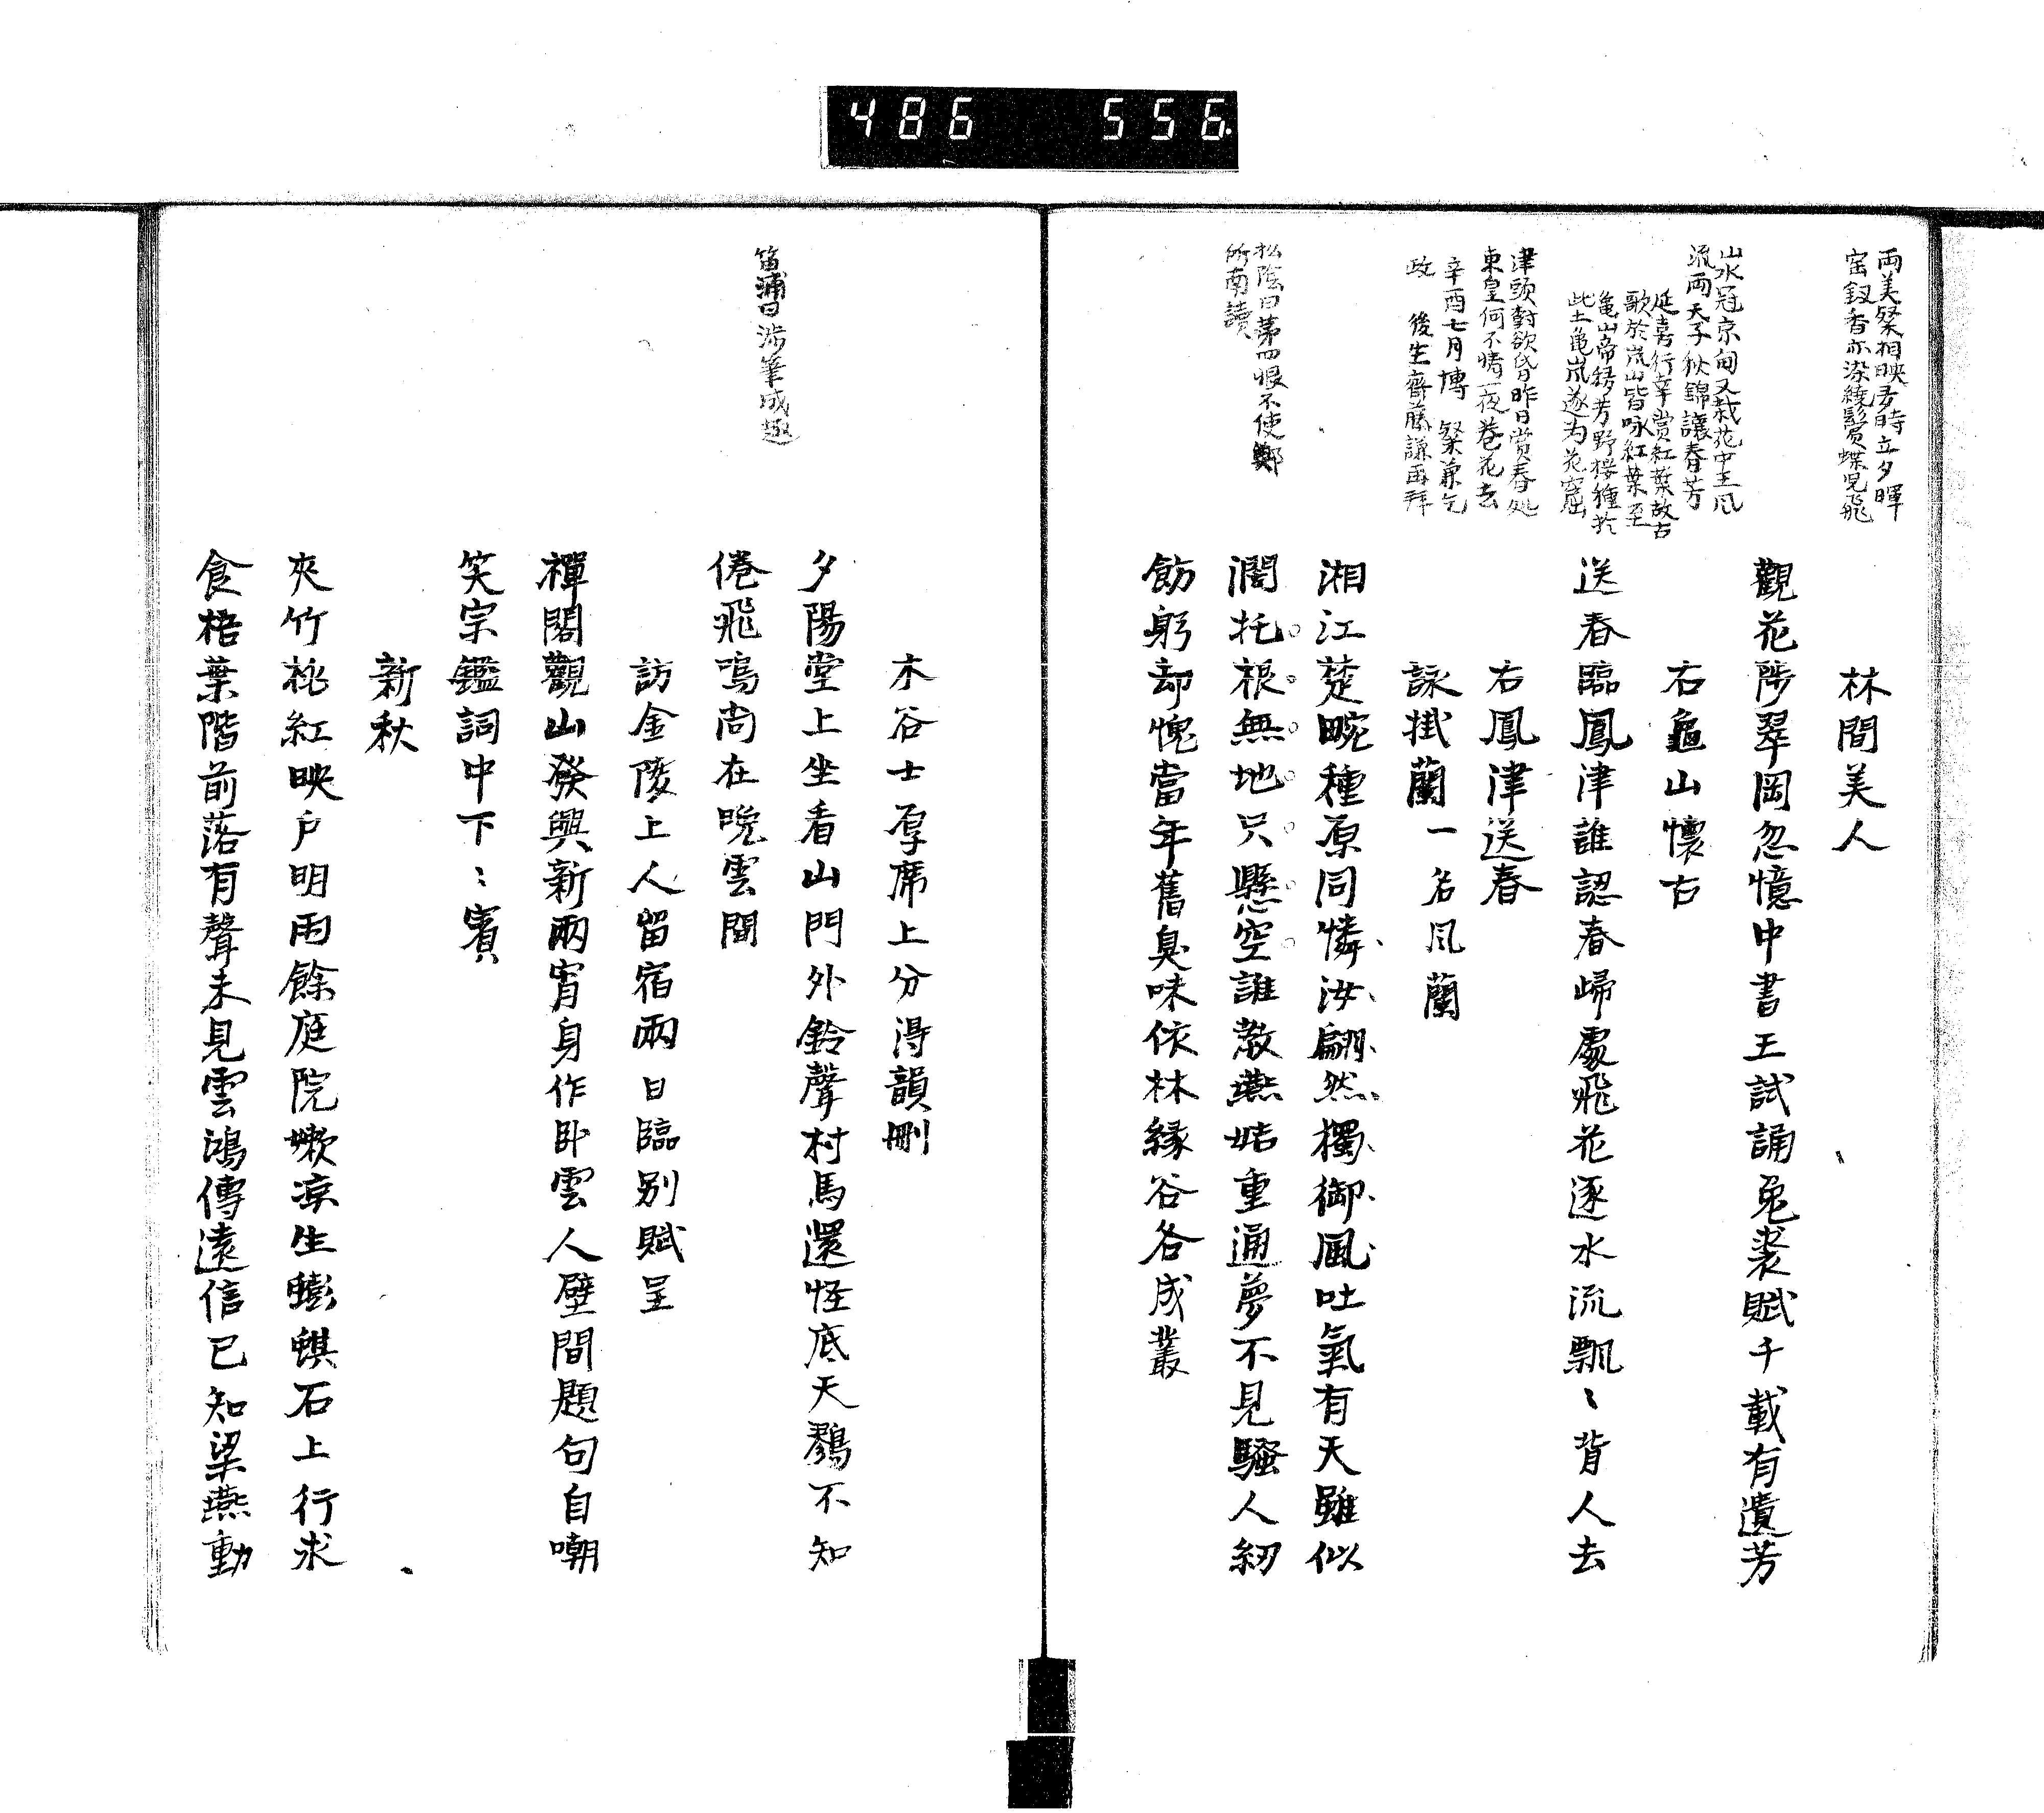 486 556
両美粲相映多時立夕暉
宝釵香亦染繞鬢蝶児飛
山水冠京甸又栽花中王風
流両天子秋錦讓春芳
延喜行幸賞紅葉故古
歌於嵐山皆咏紅葉至
亀山帝移芳野桜種於
此土亀嵐遂为花窟
津頭對欲昏昨日賞春処
東皇何不情一夜巻花去
辛酉七月博 粲兼乞
政 後生齋藤謙再拜
松陰曰第四恨不使鄭
所南讀
林間美人
觀花陟翠岡忽憶中書王試誦兔裘賦千載有遺芳
右龜山懷古
送春臨鳳津誰認春歸處飛花逐水流飄〻背人去
右鳳津送春
詠掛蘭一名风蘭
湘江楚畹種原同憐汝翩然獨御風吐氣有天雖似
濶托根無地只懸空誰教燕姞重通夢不見騷人紉
飭躬却愧當年舊臭味依林緣谷各成叢
笛浦曰渉筆成趣
木谷士厚席上分得韻刪
夕陽堂上坐看山門外鈴聲村馬還怪底天鷚不知
倦飛鳴尚在晚雲間
訪金陵上人留宿兩日臨别賦呈
禪閣觀山發興新兩宵身作卧雲人壁間題句自嘲
笑宗鑑詞中下〻賓
新秋
夾竹桃紅映户明雨餘庭院嫩凉生蟛蜞石上行求
食梧葉階前落有聲未見雲鴻傳遠信已知梁燕動